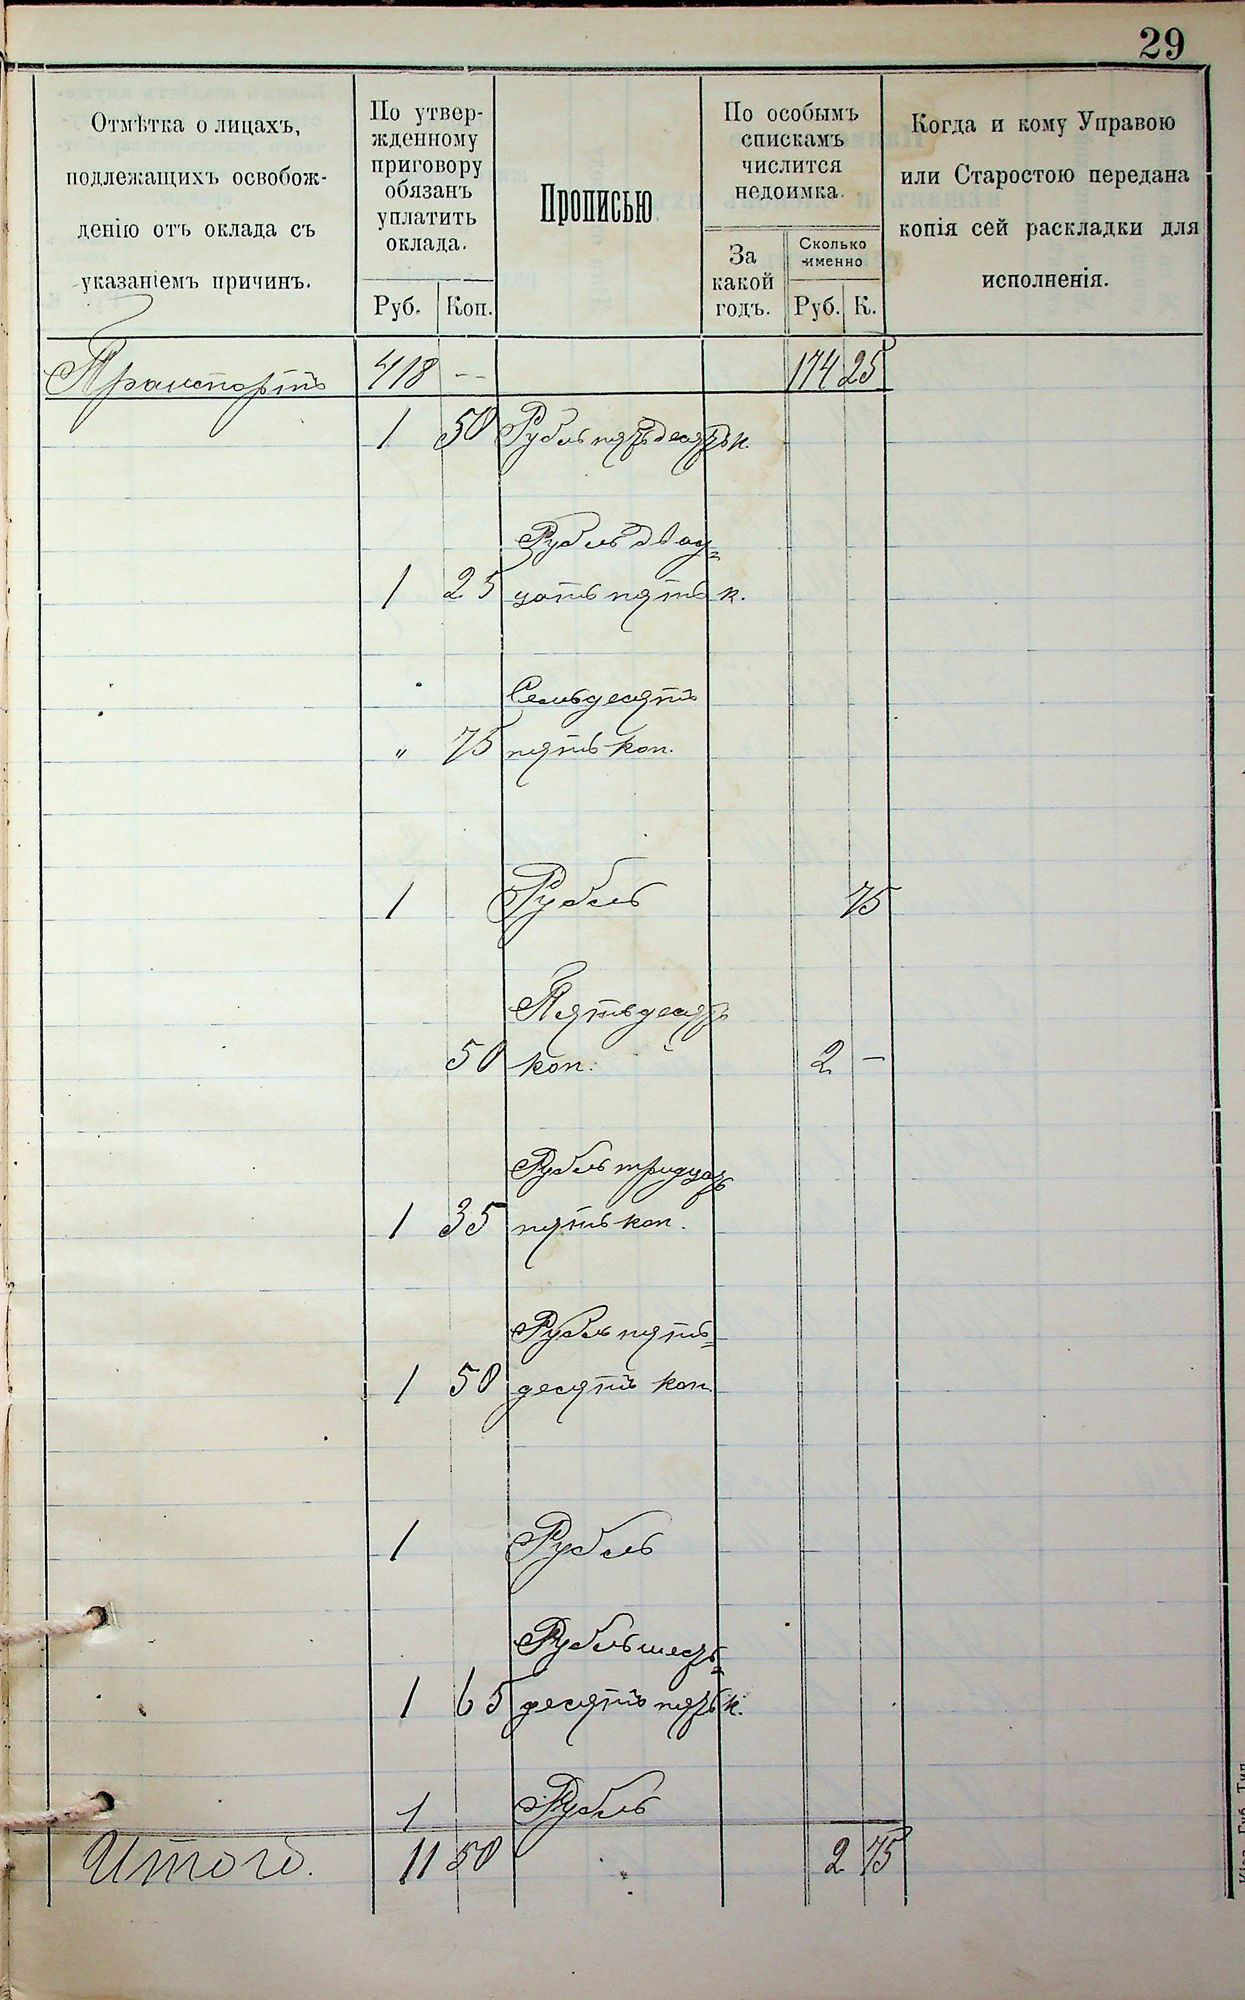 29
Отмѣтка о лицахъ,
подлежащихъ освобож-
денію отъ оклада съ
указаніемъ причинъ.
По утвер-
жденному
приговору
обязанъ
уплатить
оклада.
Руб.
Коп.
Прописью
По особымъ
спискамъ
числится
недоимка.
За
какой
годъ.
Сколько
именно
Руб.
К.
Когда и кому Управою
или Старостою передана
копія сей раскладки для
исполненія.
Транспортъ 418 -- 174 25
1 50 Рубль пятьдесятъ к.
Рубль двад=
1 25 цать пять к.
Семьдесятъ
" 75 пять коп.
1 Рубль 75
Пятьдесятъ
50 коп. 2 —
Рубль тридцать
1 35 пять коп.
Рубль пять=
1 50 десятъ коп
1 Рубль
Рубль шесть=
1 65 десятъ пять к.
1 Рубль
Итого. 11 50 2 75